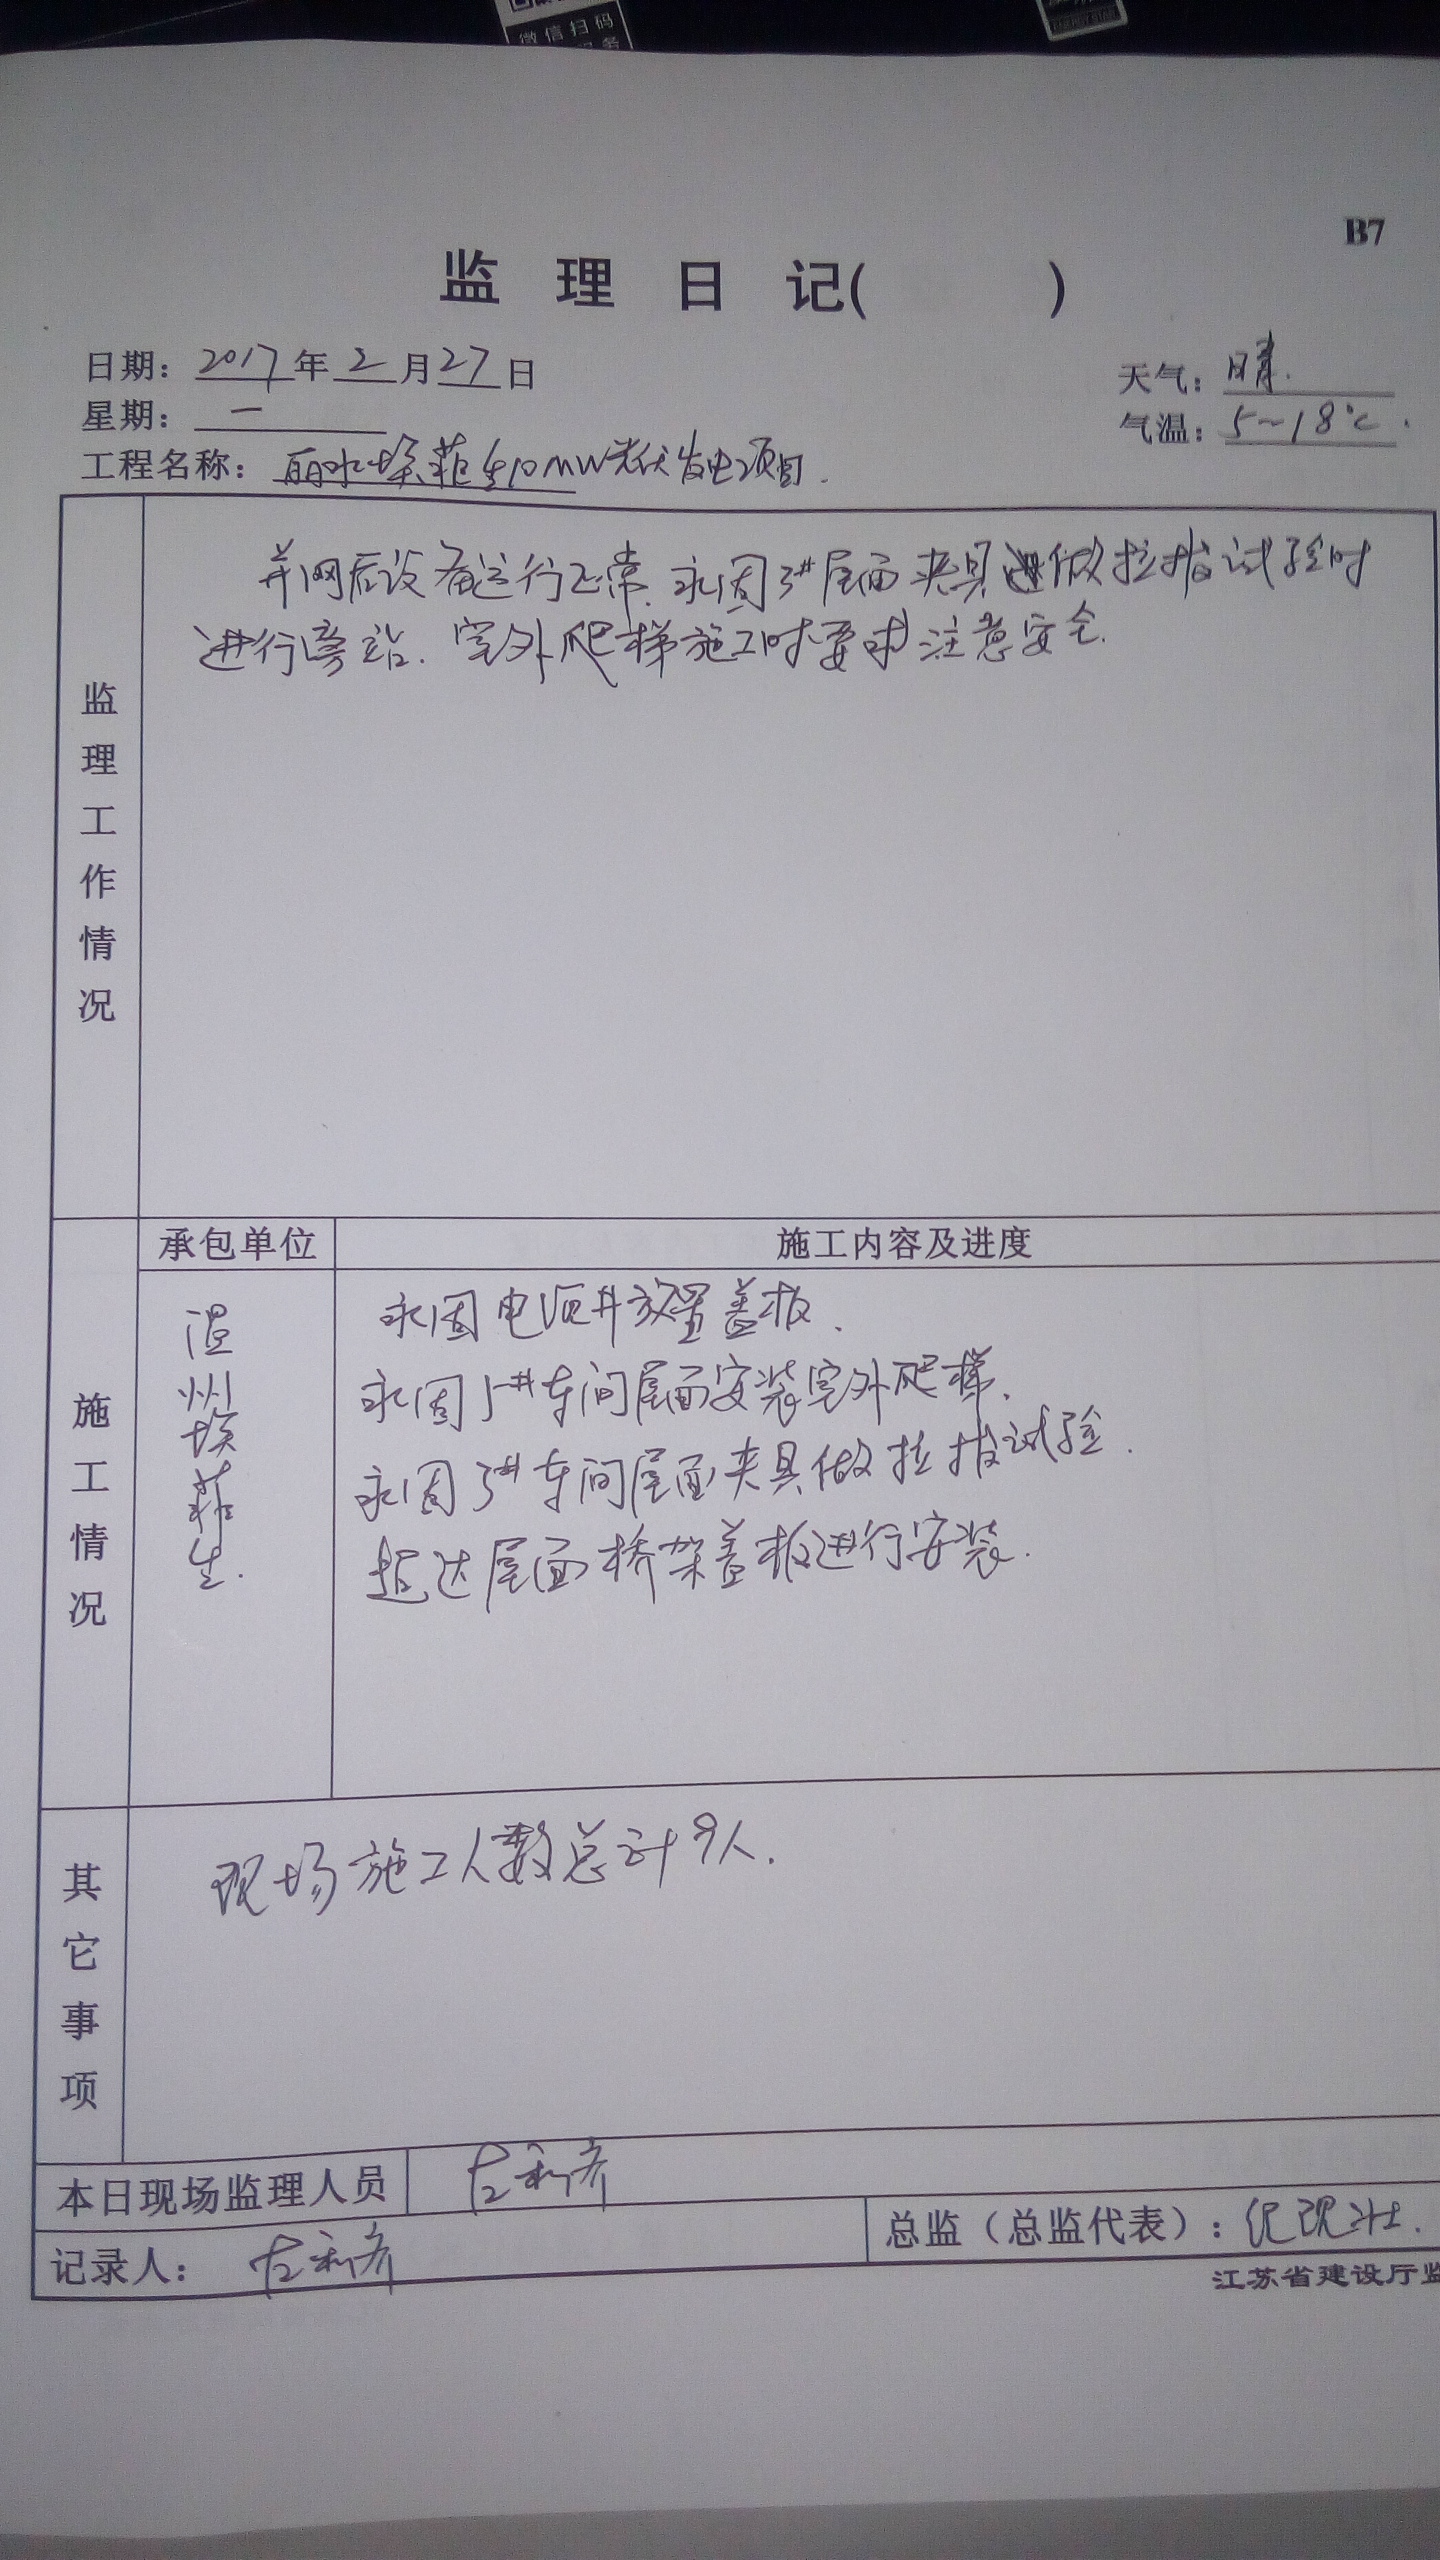 微信扫码
B7
监理日记(        )
日期：2017年2月27日
天气：晴.
星期：一
气温：5~18℃.
工程名称：丽水埃菲生10MW光伏发电项目.
监理工作情况
并网后设备运行正常.永固3#屋面夹具做拉拔试验时
进行旁站.室外爬梯施工时要求注意安全.
施工情况
承包单位
施工内容及进度
温州埃菲生.
永固电缆井放置盖板.
永固1#车间屋面安装室外爬梯.
永固3#车间屋面夹具做拉拔试验.
超达屋面桥架盖板进行安装.
其它事项
现场施工人数总计9人.
本日现场监理人员
记录人：
总监（总监代表）：
江苏省建设厅监